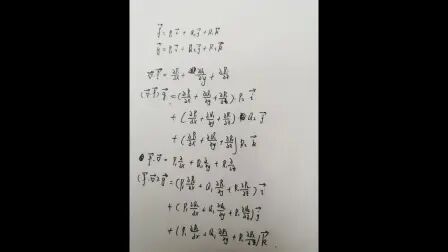 f⃗ = P₁ i⃗ + Q₁ j⃗ + R₁ k⃗
g⃗ = P₂ i⃗ + Q₂ j⃗ + R₂ k⃗
∇⃗·f⃗ = ∂P₁/∂x + ∂Q₁/∂y + ∂R₁/∂z
(∇⃗·f⃗) g⃗ = (∂P₁/∂x + ∂Q₁/∂y + ∂R₁/∂z) P₂ i⃗
+ (∂P₁/∂x + ∂Q₁/∂y + ∂R₁/∂z) Q₂ j⃗
+ (∂P₁/∂x + ∂Q₁/∂y + ∂R₁/∂z) R₂ k⃗
f⃗·∇⃗ = P₁ ∂/∂x + Q₁ ∂/∂y + R₁ ∂/∂z
(f⃗·∇⃗) g⃗ = (P₁ ∂P₂/∂x + Q₁ ∂P₂/∂y + R₁ ∂P₂/∂z) i⃗
+ (P₁ ∂Q₂/∂x + Q₁ ∂Q₂/∂y + R₁ ∂Q₂/∂z) j⃗
+ (P₁ ∂R₂/∂x + Q₁ ∂R₂/∂y + R₁ ∂R₂/∂z) k⃗